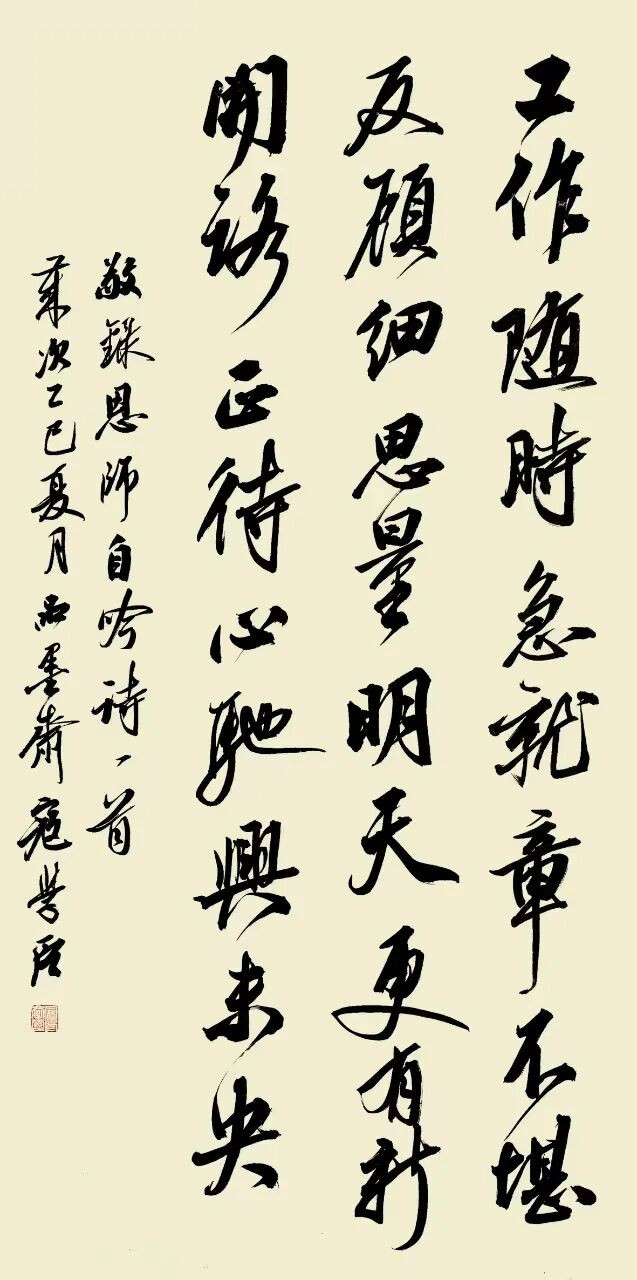 工作随時急就章不堪
反顧细思量明天更有新
開路正待心馳興未央
敬録恩師自吟诗一首
歲次乙巳夏月品墨齋寇学臣